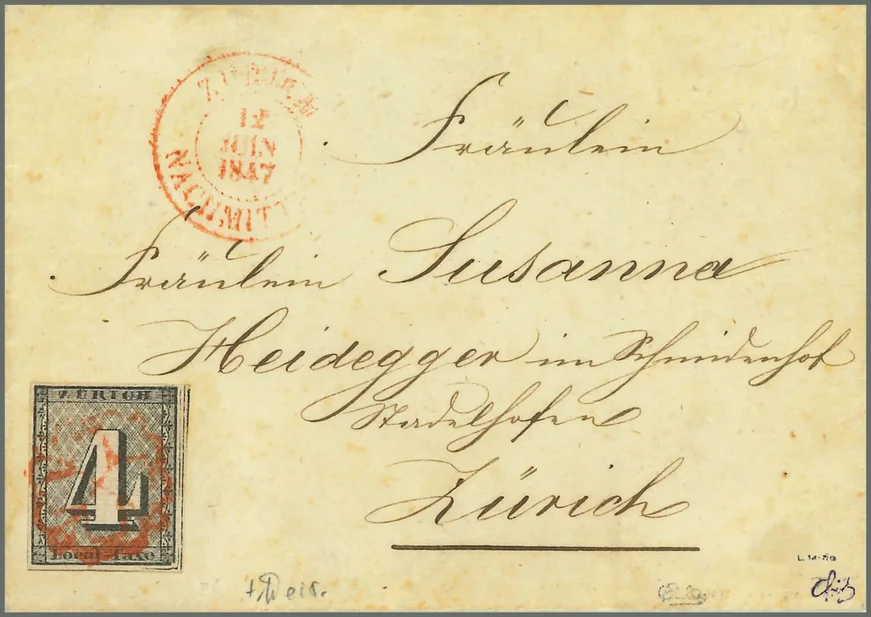 ZÜRICH
12
JUIN
1847
NACHMITT
Fräulein
Fräulein Susanna
Heidegger im Schmidenhof
Stadelhofen
Zürich
ZÜRICH
4
Local-Taxe